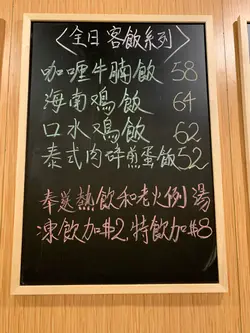 〈全日客飯系列〉
咖喱牛腩飯 58
海南鳮飯 64
口水鳮飯 62
泰式肉碎煎蛋飯 52
奉送熱飲和老火例湯
凍飲加$2，特飲加$8